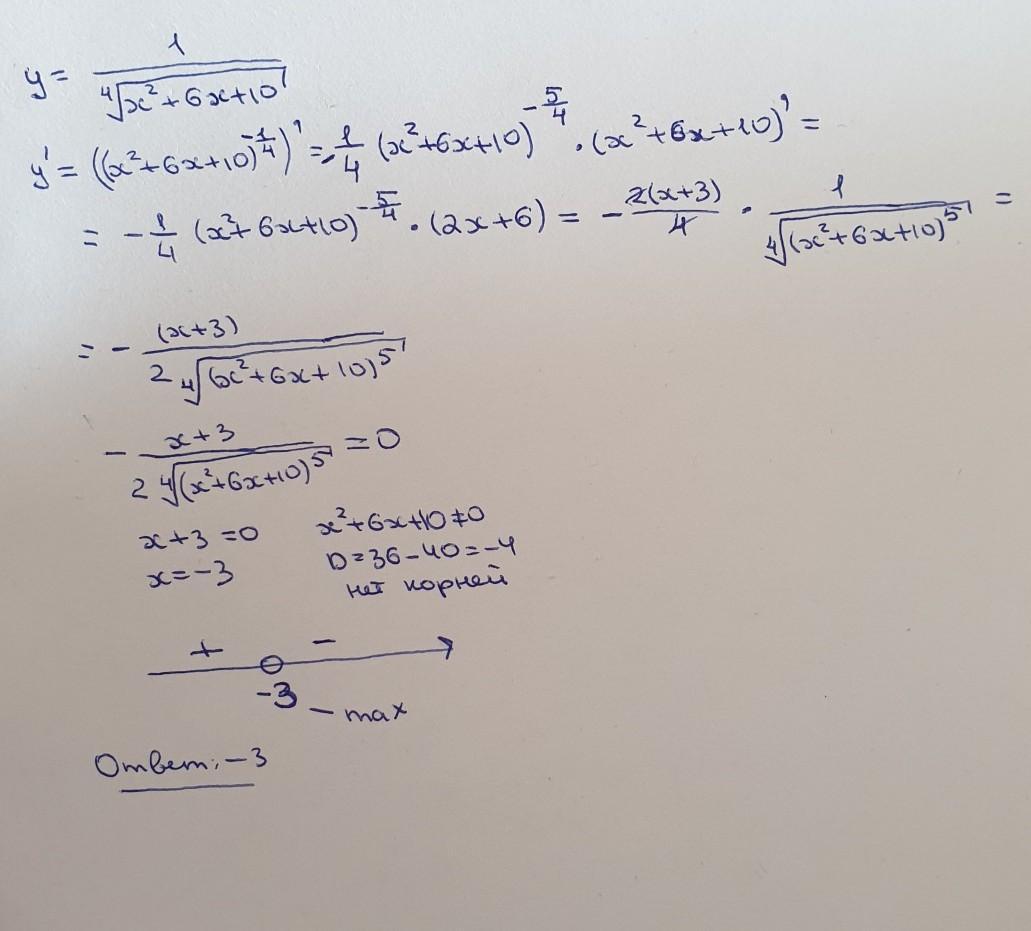 y = 1/⁴√(x²+6x+10)
y' = ((x²+6x+10)^(-1/4))' = -1/4 (x²+6x+10)^(-5/4) · (x²+6x+10)' =
= -1/4 (x²+6x+10)^(-5/4) · (2x+6) = - 2(x+3)/4 · 1/⁴√((x²+6x+10)⁵) =
= - (x+3)/(2 ⁴√((x²+6x+10)⁵))
- x+3/(2 ⁴√((x²+6x+10)⁵)) = 0
x+3=0 x²+6x+10≠0
x=-3 D=36-40=-4
нет корней
+ -
-3 - max
Ответ: -3